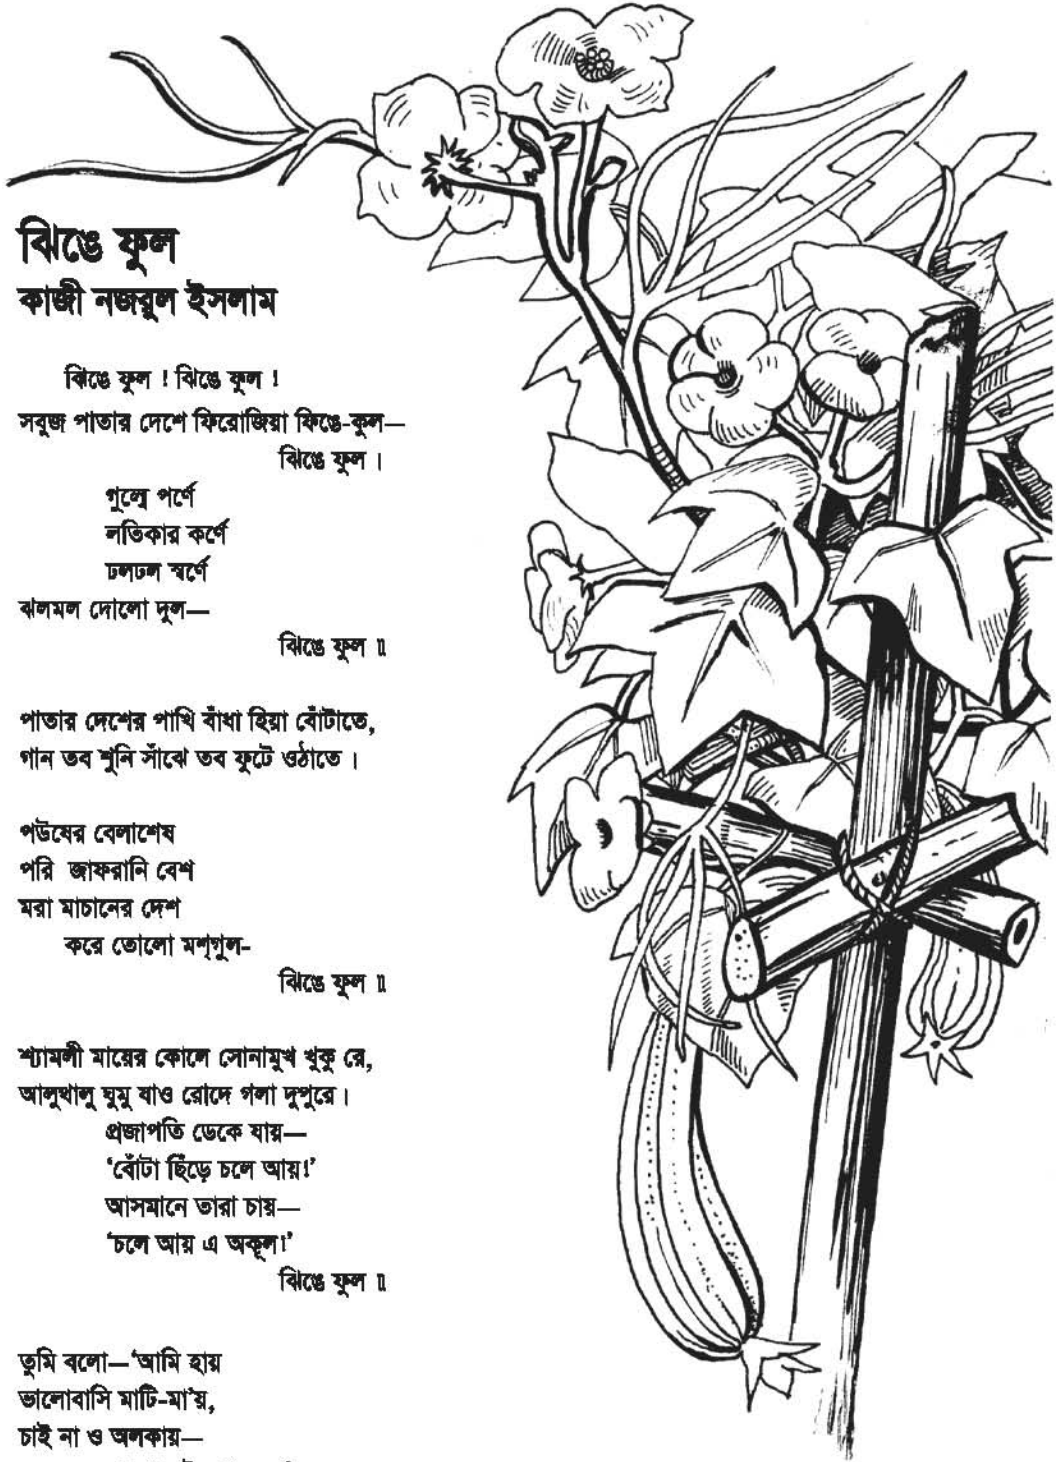 ঝিঙে ফুল
কাজী নজরুল ইসলাম
ঝিঙে ফুল ! ঝিঙে ফুল !
সবুজ পাতার দেশে ফিরোজিয়া ফিঙে-কুল—
ঝিঙে ফুল ।
গুল্মে পর্ণে
লতিকার কর্ণে
ঢলঢল স্বর্ণে
ঝলমল দোলো দুল—
ঝিঙে ফুল ॥
পাতার দেশের পাখি বাঁধা হিয়া বোঁটাতে,
গান তব শুনি সাঁঝে তব ফুটে ওঠাতে ।
পউষের বেলাশেষ
পরি জাফরানি বেশ
মরা মাচানের দেশ
করে তোলো মশ্গুল-
ঝিঙে ফুল ॥
শ্যামলী মায়ের কোলে সোনামুখ খুকু রে,
আলুথালু ঘুমু যাও রোদে গলা দুপুরে ।
প্রজাপতি ডেকে যায়—
‘বোঁটা ছিঁড়ে চলে আয়!’
আসমানে তারা চায়—
‘চলে আয় এ অকূল!’
ঝিঙে ফুল ॥
তুমি বলো—‘আমি হায়
ভালোবাসি মাটি-মা’য়,
চাই না ও অলকায়—